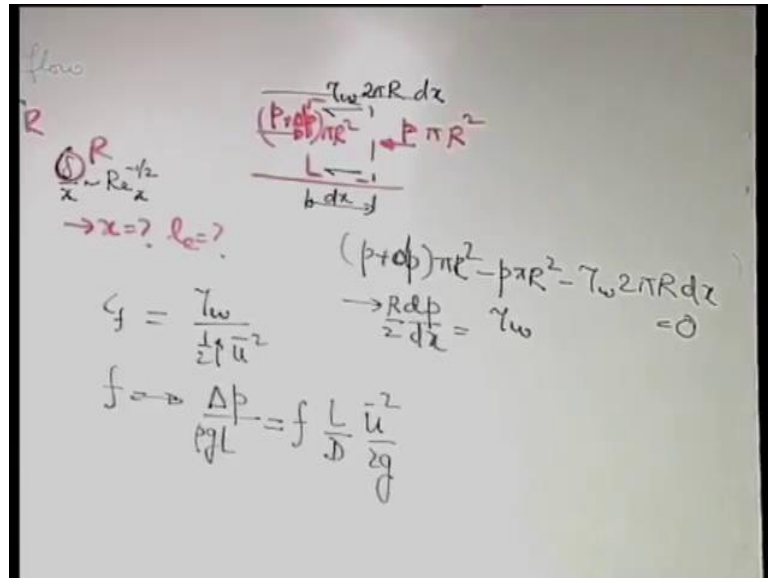 flow
R
τw 2πR dx
(p+dp)πR² p πR²
L
dx
R
δ/x ~ Reₓ^(-1/2)
→ x=? le=?
(p+dp)πR² - pπR² - τw 2πR dx = 0
→ R/2 dp/dx = τw
Cf = τw / (½ρū²)
f → Δp/(ρgL) = f L/D ū²/2g